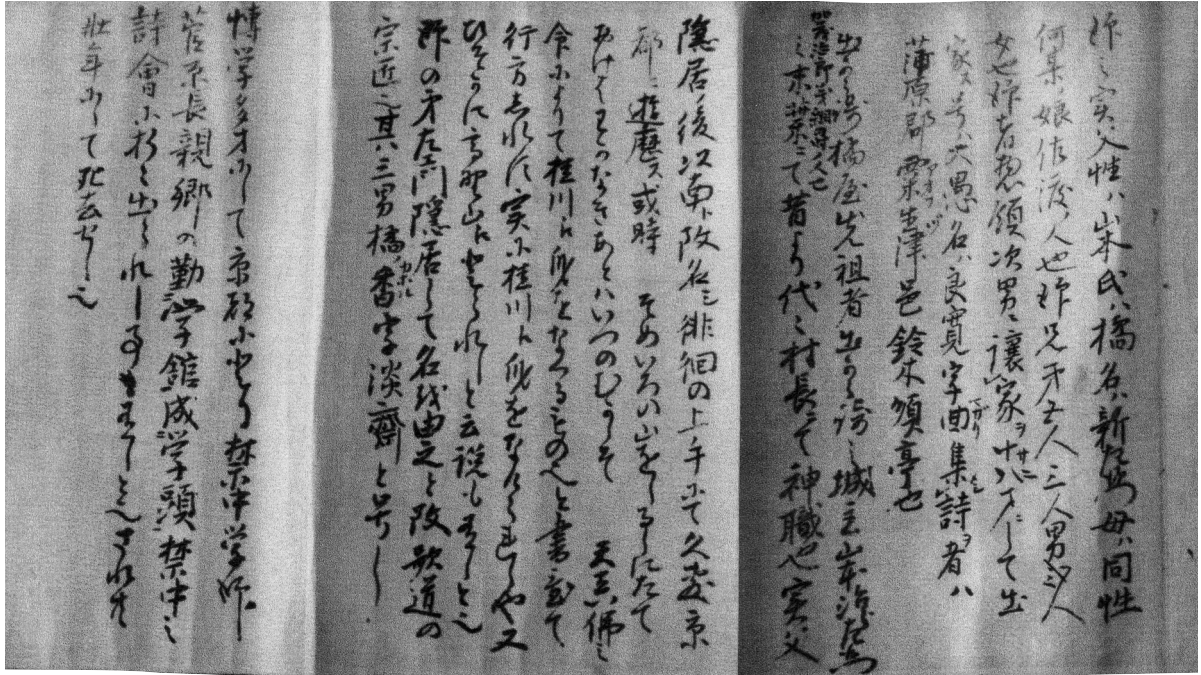 師之実父性ハ山本氏ハ橘名ハ新左ヱ門母ハ同性
何某ノ娘佐渡ノ人也師兄弟五人三人男弐人
女也師者惣領次男ニ譲家ヲ十八才ニして出
家ス号ハ大愚名ハ良寛字曲集詩ヲ者ハ
蒲原郡粟生津邑鈴木順亭也
出雲崎橘屋先祖者出雲崎之城主山本
之末葉ニて昔より代々村長ニて神職也実父
隠居ノ後以南ト改名シ俳徊の上手にて久敷京
都ニ遊歴ス或時 そめいろの山をしるしにたて
おけはわかなきあとハいつのむかしそ 天真佛之
令によりて桂川ニ身をなくるものへと書置て
行方しれす実に桂川ニ身をなけられしや又
ひそかに高野山にのほられしと云説もありしと也
師の弟左門隠居して名を由之と改歌道の
宗匠也其ハ三男橘ノ香字淡齋と号し
博学多才にして京都にのほり禁中学師
菅原長親卿の勤学館成学頭禁中之
詩會に折々出られし事も有しとそされと
壮年にして死去せし也